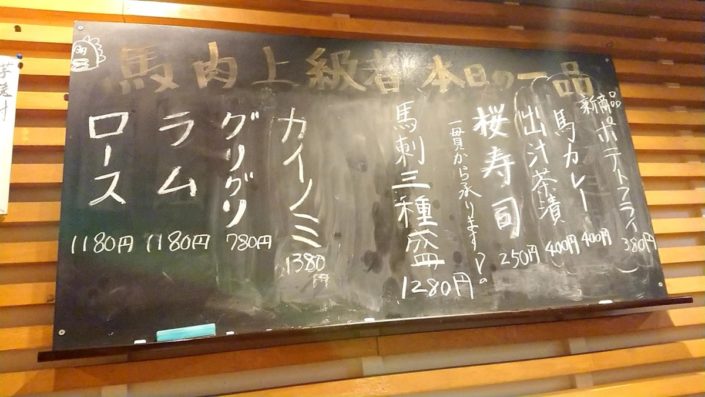 馬肉上級者 本日の一品
新商品
ポテトフライ 380円
馬カレー 400円
出汁茶漬 400円
桜寿司 250円
一貫から承ります♪。
馬刺三種盛 1280円
カイノミ 1380円
グリグリ 780円
ラム 1180円
ロース 1180円